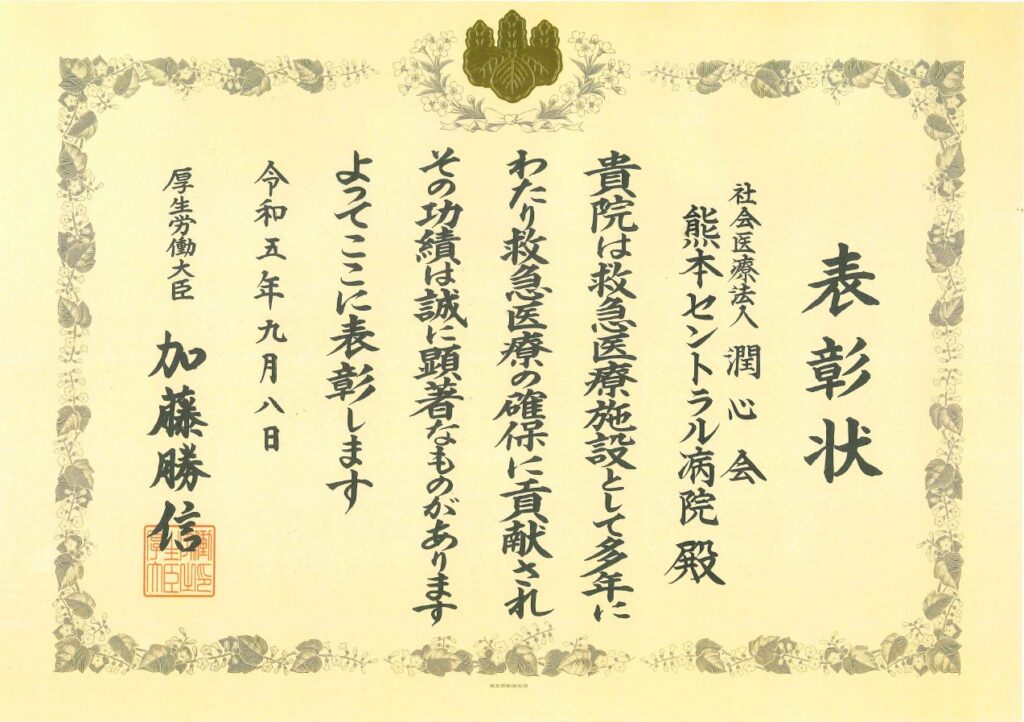 表彰状
社会医療法人 潤心会
熊本セントラル病院 殿
貴院は救急医療施設として多年に
わたり救急医療の確保に貢献され
その功績は誠に顕著なものがあります
よってここに表彰します
令和五年九月八日
厚生労働大臣 加藤勝信